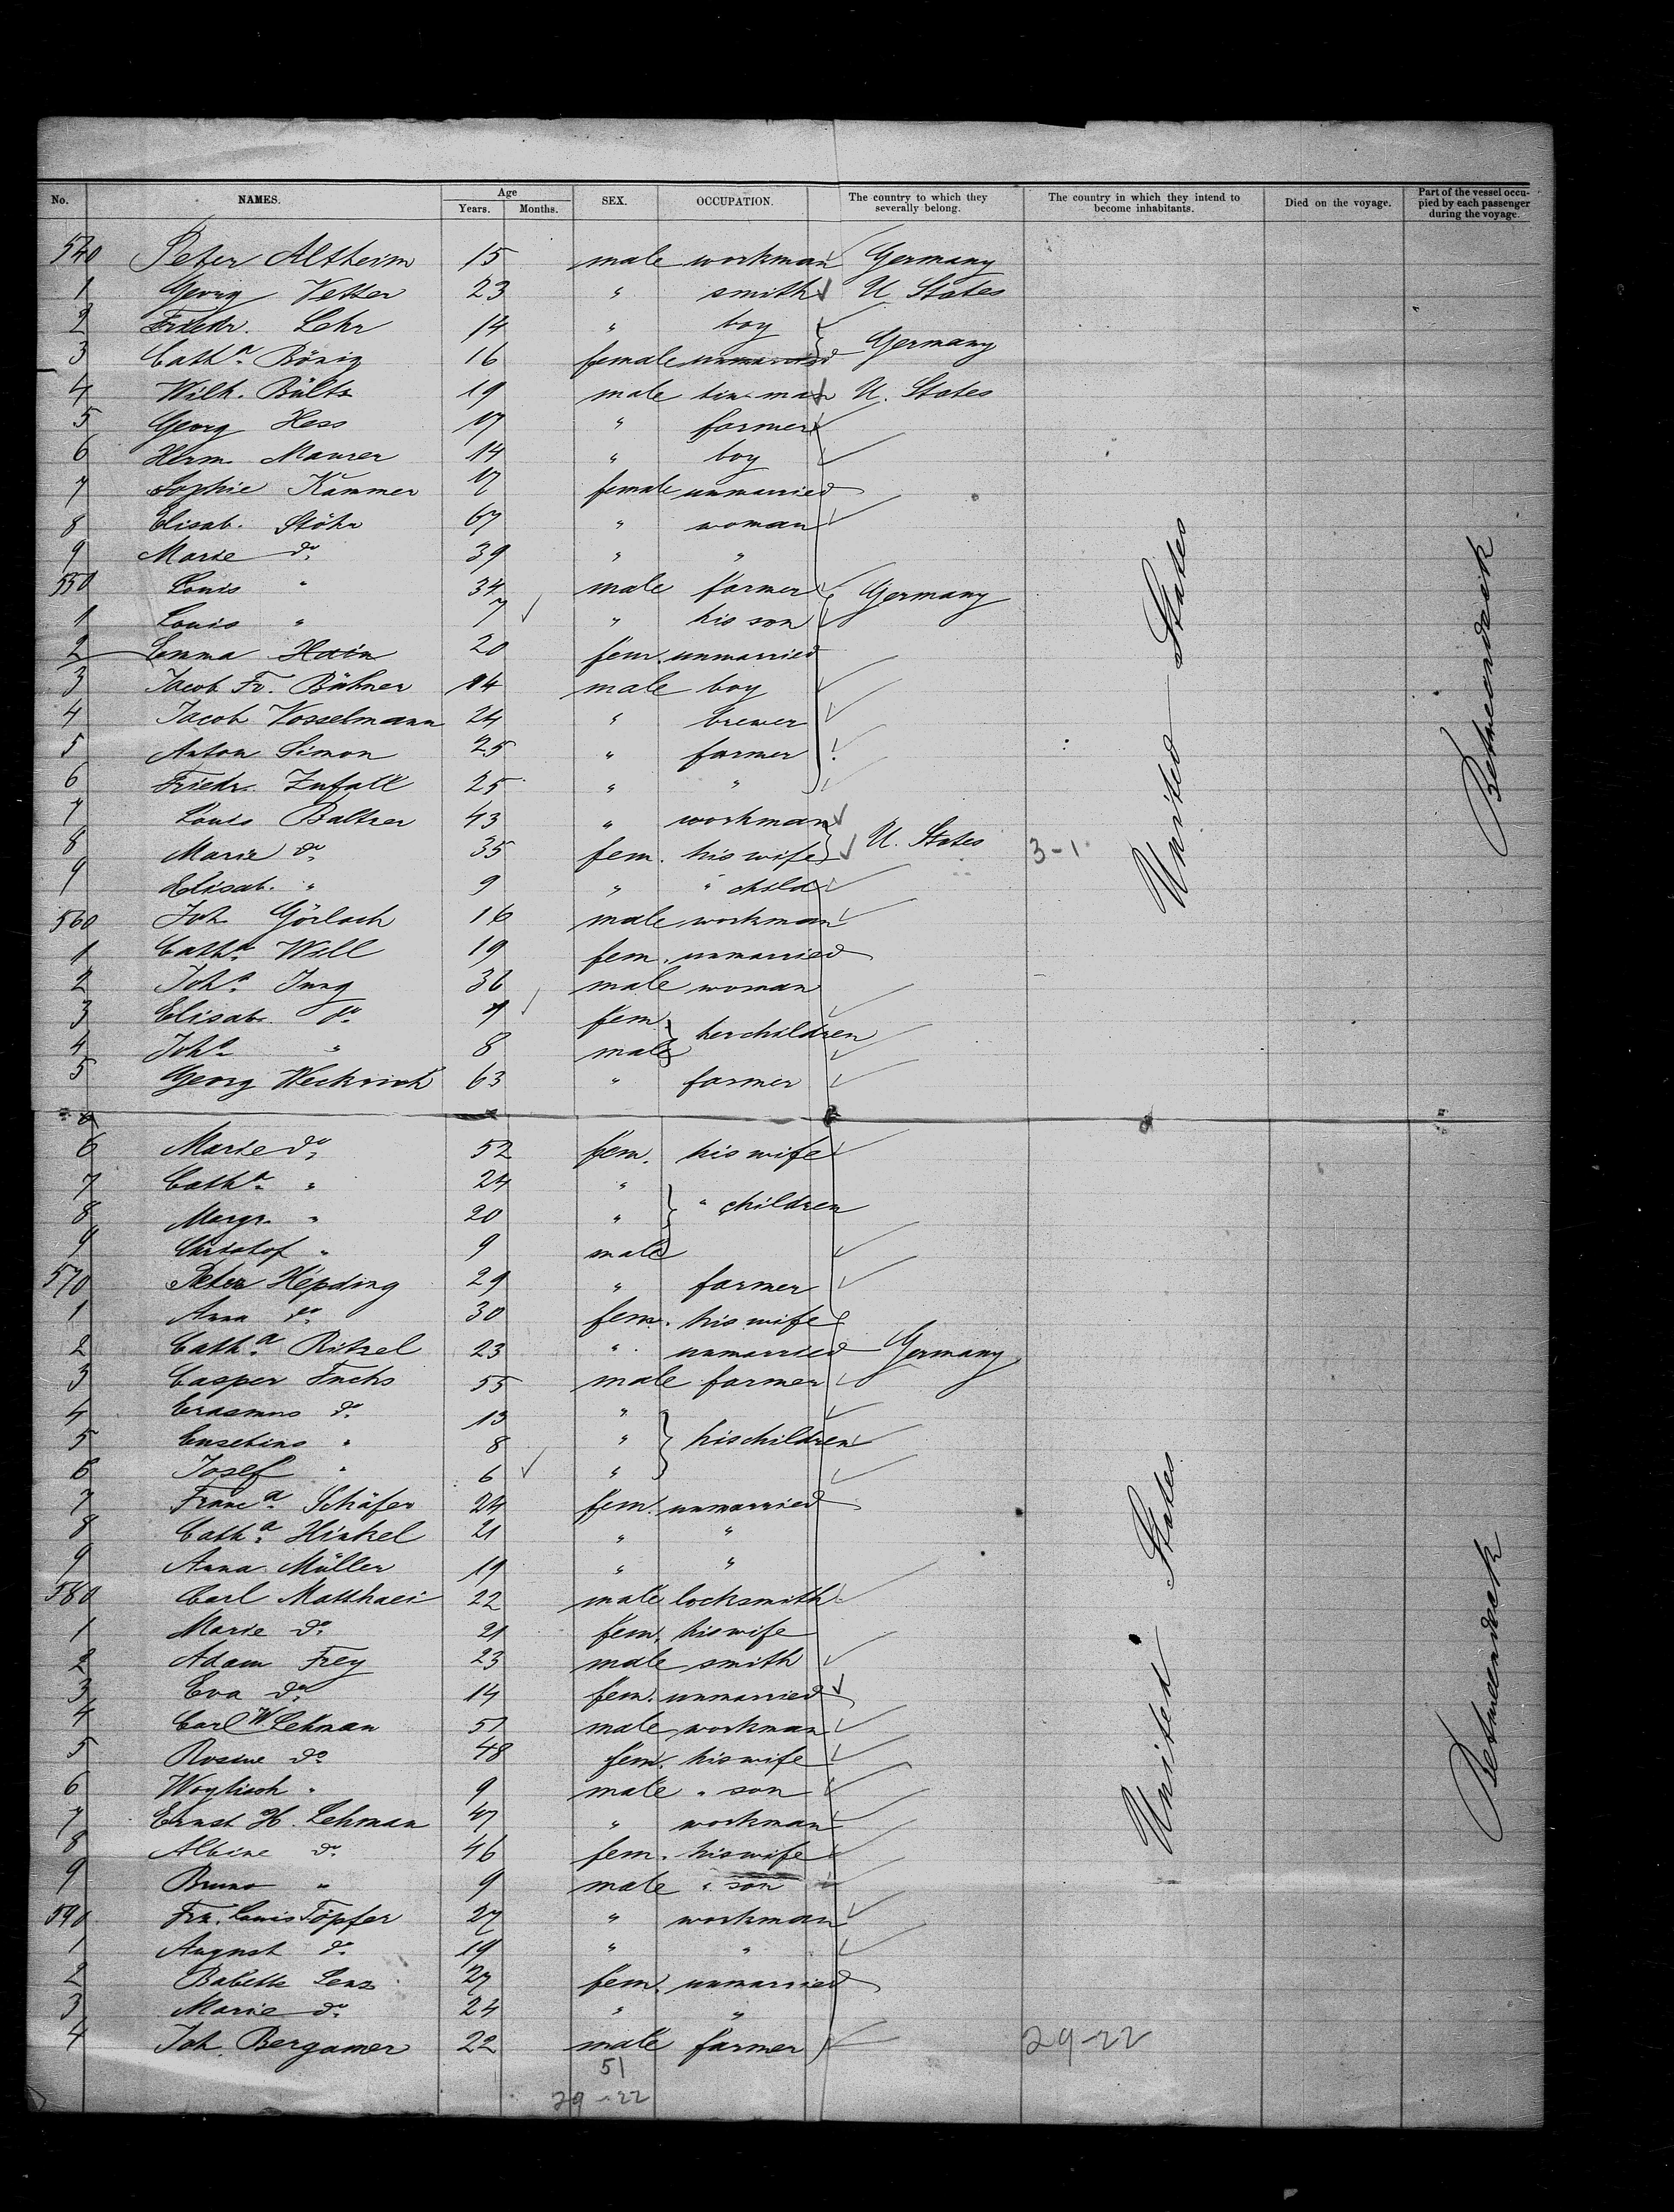 No. NAMES. Age Years. Months. SEX. OCCUPATION. The country to which they severally belong. The country in which they intend to become inhabitants. Died on the voyage. Part of the vessel occupied by each passenger during the voyage.
540 Peter Altheim 15 male workman Germany
1 Georg Vetter 23 " smith U. States
2 Friedr. Lehr 14 " boy
3 Catha. Bönig 16 female unmarried Germany
4 Wilh. Bültz 19 male tin-man U. States
5 Georg Hess 17 " farmer
6 Herm. Maurer 14 " boy
7 Sophie Kammer 17 female unmarried
8 Elisab. Stöhr 67 " woman
9 Marie do. 39 " "
550 Louis " 34 male farmer Germany
1 Louis " 7 " his son
2 Emma Hain 20 fem. unmarried
3 Jacob Fr. Bühner 14 male boy
4 Jacob Vosselmann 24 " brewer
5 Anton Simon 25 " farmer
6 Friedr. Zufall 25 " "
7 Louis Baltzer 43 " workman
8 Marie do. 35 fem. his wife U. States 3-1
9 Elisab. " 9 " " child
560 Joh. Görlach 16 male workman
1 Catha. Will 19 fem. unmarried
2 Joha. Jung 36 male woman
3 Elisab. do. 9 fem. her children
4 Joha. " 8 male
5 Georg 63 " farmer
6 Marie do. 52 fem. his wife
7 Catha. " 24 "
8 Margr. " 20 " " children
9 Christof " 9 male
570 Peter Hepding 29 " farmer
1 Anna do. 30 fem. his wife
2 Catha. Ritzel 23 " unmarried Germany
3 Casper Fuchs 55 male farmer
4 Erasmus do. 13 "
5 Eusebius " 8 " his children
6 Josef " 6 "
7 Franca. Schäfer 24 fem. unmarried
8 Catha. Hinkel 21 " "
9 Anna Müller 19 " "
580 Carl Matthaei 22 male locksmith
1 Marie do. 21 fem. his wife
2 Adam Frey 23 male smith
3 Eva do. 14 fem. unmarried
4 Carl W. Lehman 51 male workman
5 Rosine do. 48 fem. his wife
6 9 male " son
7 Ernst H. Lehman 47 " workman
8 Albine do. 46 fem. his wife
9 Bruno " 9 male " son
590 Frz. Louis Töpfer 27 " workman
1 August do. 19 " "
2 Babette Lenz 27 fem. unmarried
3 Marie do. 24 " "
4 Joh. Bergamer 22 male farmer 29-22
51
29-22
United States
Betweendeck
United States
Betweendeck